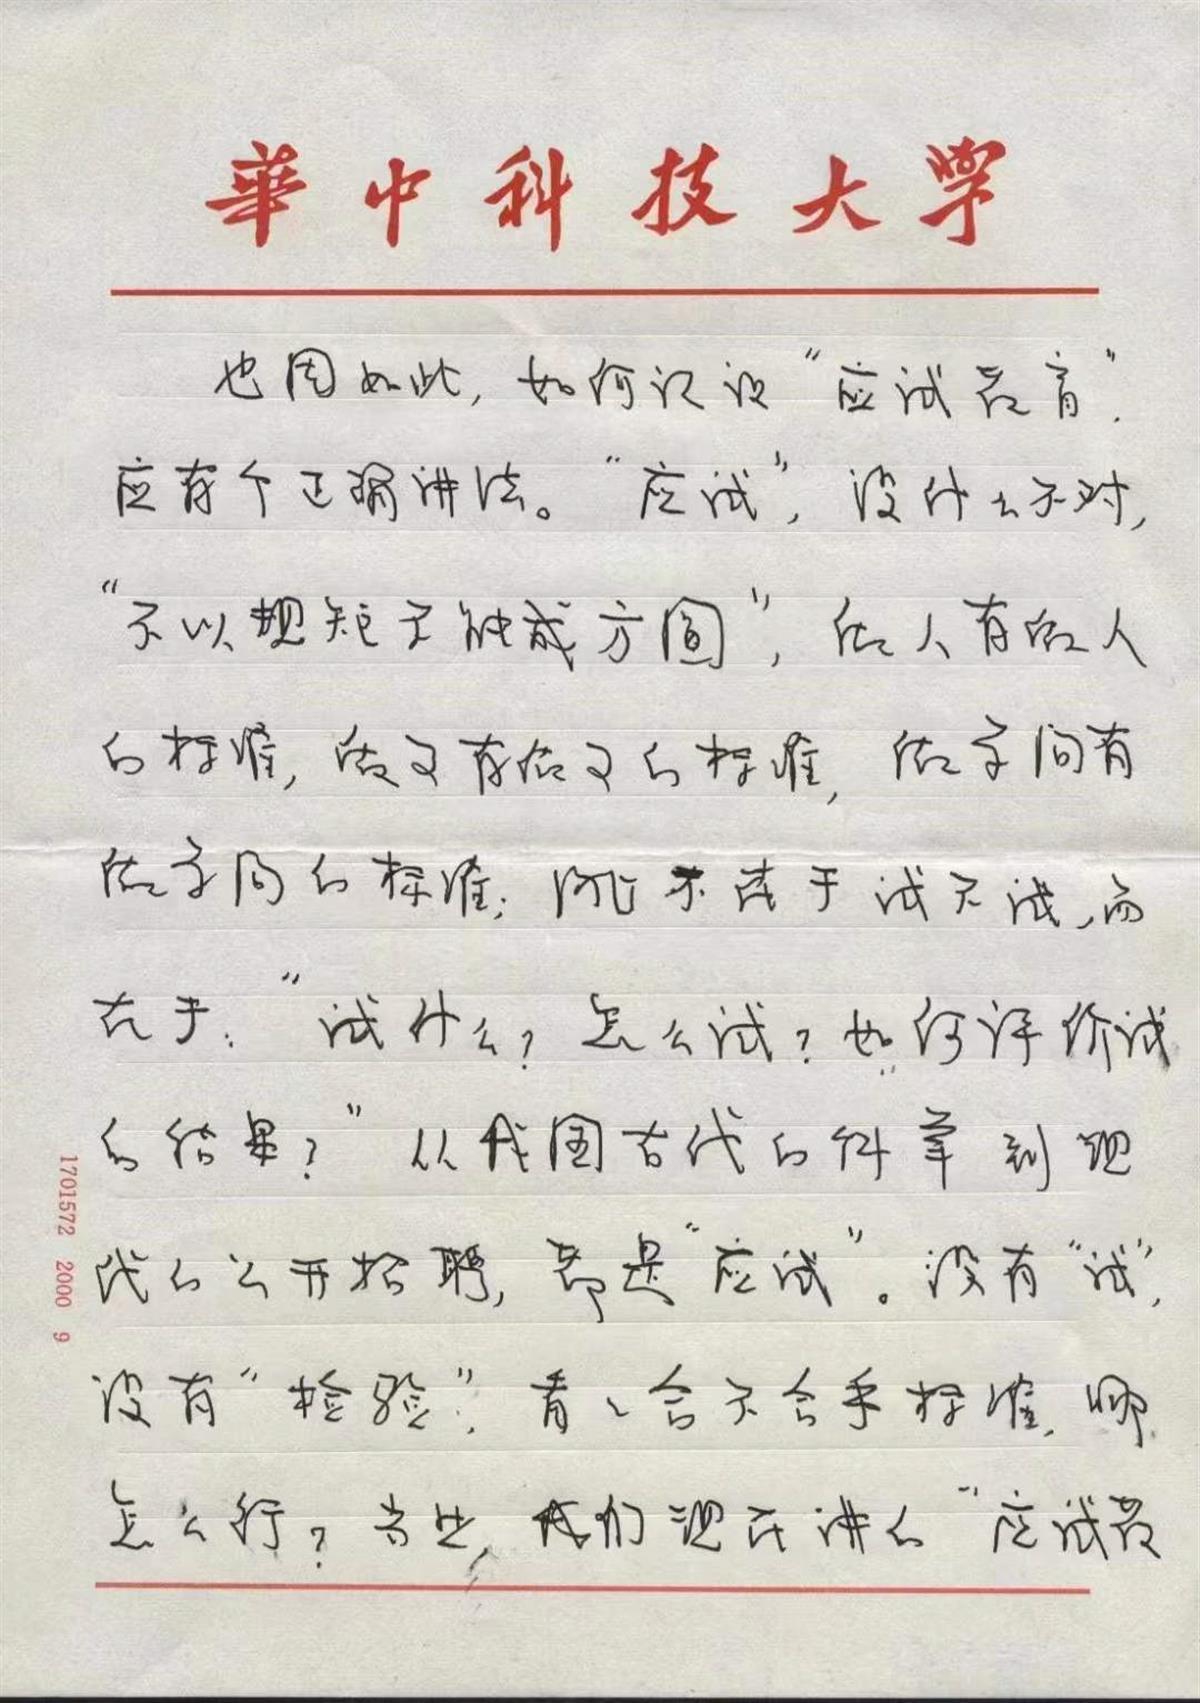 華中科技大学
也因如此，如何认识“应试教育”，
应有个正确讲法。“应试”，没什么不对，
“不以规矩不能成方圆”，做人有做人
的标准，做文有做文的标准，做学问有
做学问的标准；问题不在于试不试，而
在于：“试什么？怎么试？如何评价试
的结果？”从我国古代的科举到现
代的公开招聘，都是“应试”。没有“试”，
没有“检验”，看看合不合乎标准，那
怎么行？当然，我们现在讲的“应试教
1701572 2000 9